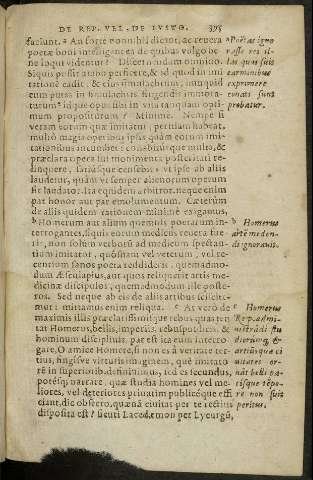 DE REP. VEL DE IVSTO. 395
faciunt. a An forte nonnihil dicūt, ac reuera
poetæ boni intelligentes de quibus vulgo be
ne loqui videntur? Discernendum omnino.
Siquis posset vtrunq; perficere, & id quod imi
tatione eadit, & eius simulachrum, nunquid
eum putas in simulachris fingendis immora-
turum? idque opus sibi in vita tanquam opti-
mum propositurum? Minime. Nempe si
veram eorum quæ imitatur, peritiam habeat,
multò magis operibus ipsis quàm eorum imi-
tationibus incumbet: conabiturque multa, &
præclara opera sui monimenta posteritati re-
linquere, satiusque censebit vt ipse ab aliis
laudetur, quàm vt semper alienorum operum
sit laudator. Ita equidem arbitror. neque enim
par honor aut par emolumentum. Cæterùm
de aliis quidem rationem minimè exigamus,
b Homerum aut alium quemuis poetarum in-
terrogantes, siquis eorum medicus reuera fue-
rit, non solùm verborū ad medicum spectan-
tium imitator, quósnam vel veterum, vel re-
centium sanos poeta reddiderit, quemadmo-
dum Æsculapius, aut quos reliquerit artis me-
dicinæ discipulos, quemadmodum ille poste-
ros. Sed neque ab eis de aliis artibus sciscite-
mur: mittamus enim reliqua. c At verò de
maximis illis præclarissimisque rebus quas tra
ctat Homerus, bellis, imperiis, rebuspublicis, &
hominum disciplinis, par est ita eum interro-
gare, O amice Homere, si non es à veritate ter-
tius, fingésve virtutis imaginem, quē imitato
rē in superioribꝰ definiuimus, sed es secundus,
potésq; narrare, quæ studia homines vel me-
liores, vel deteriores priuatim publicéque effi
ciant, dic obsecro, quænā ciuitas per te rectius
disposita est? sicuti Lacedæmon per Lycurgū,
a Poëtas igno
rasse res il-
las quas suis
carminibus
exprimere
conati sunt
probatur.
b Homerus
artē meden-
di ignorauit.
c Homerus
Rep. admi-
nistrādi stu
diorumq; &
artiūmque ci
uitates or-
nāt belli pa-
cisque tēpo-
re non fuit
peritus.